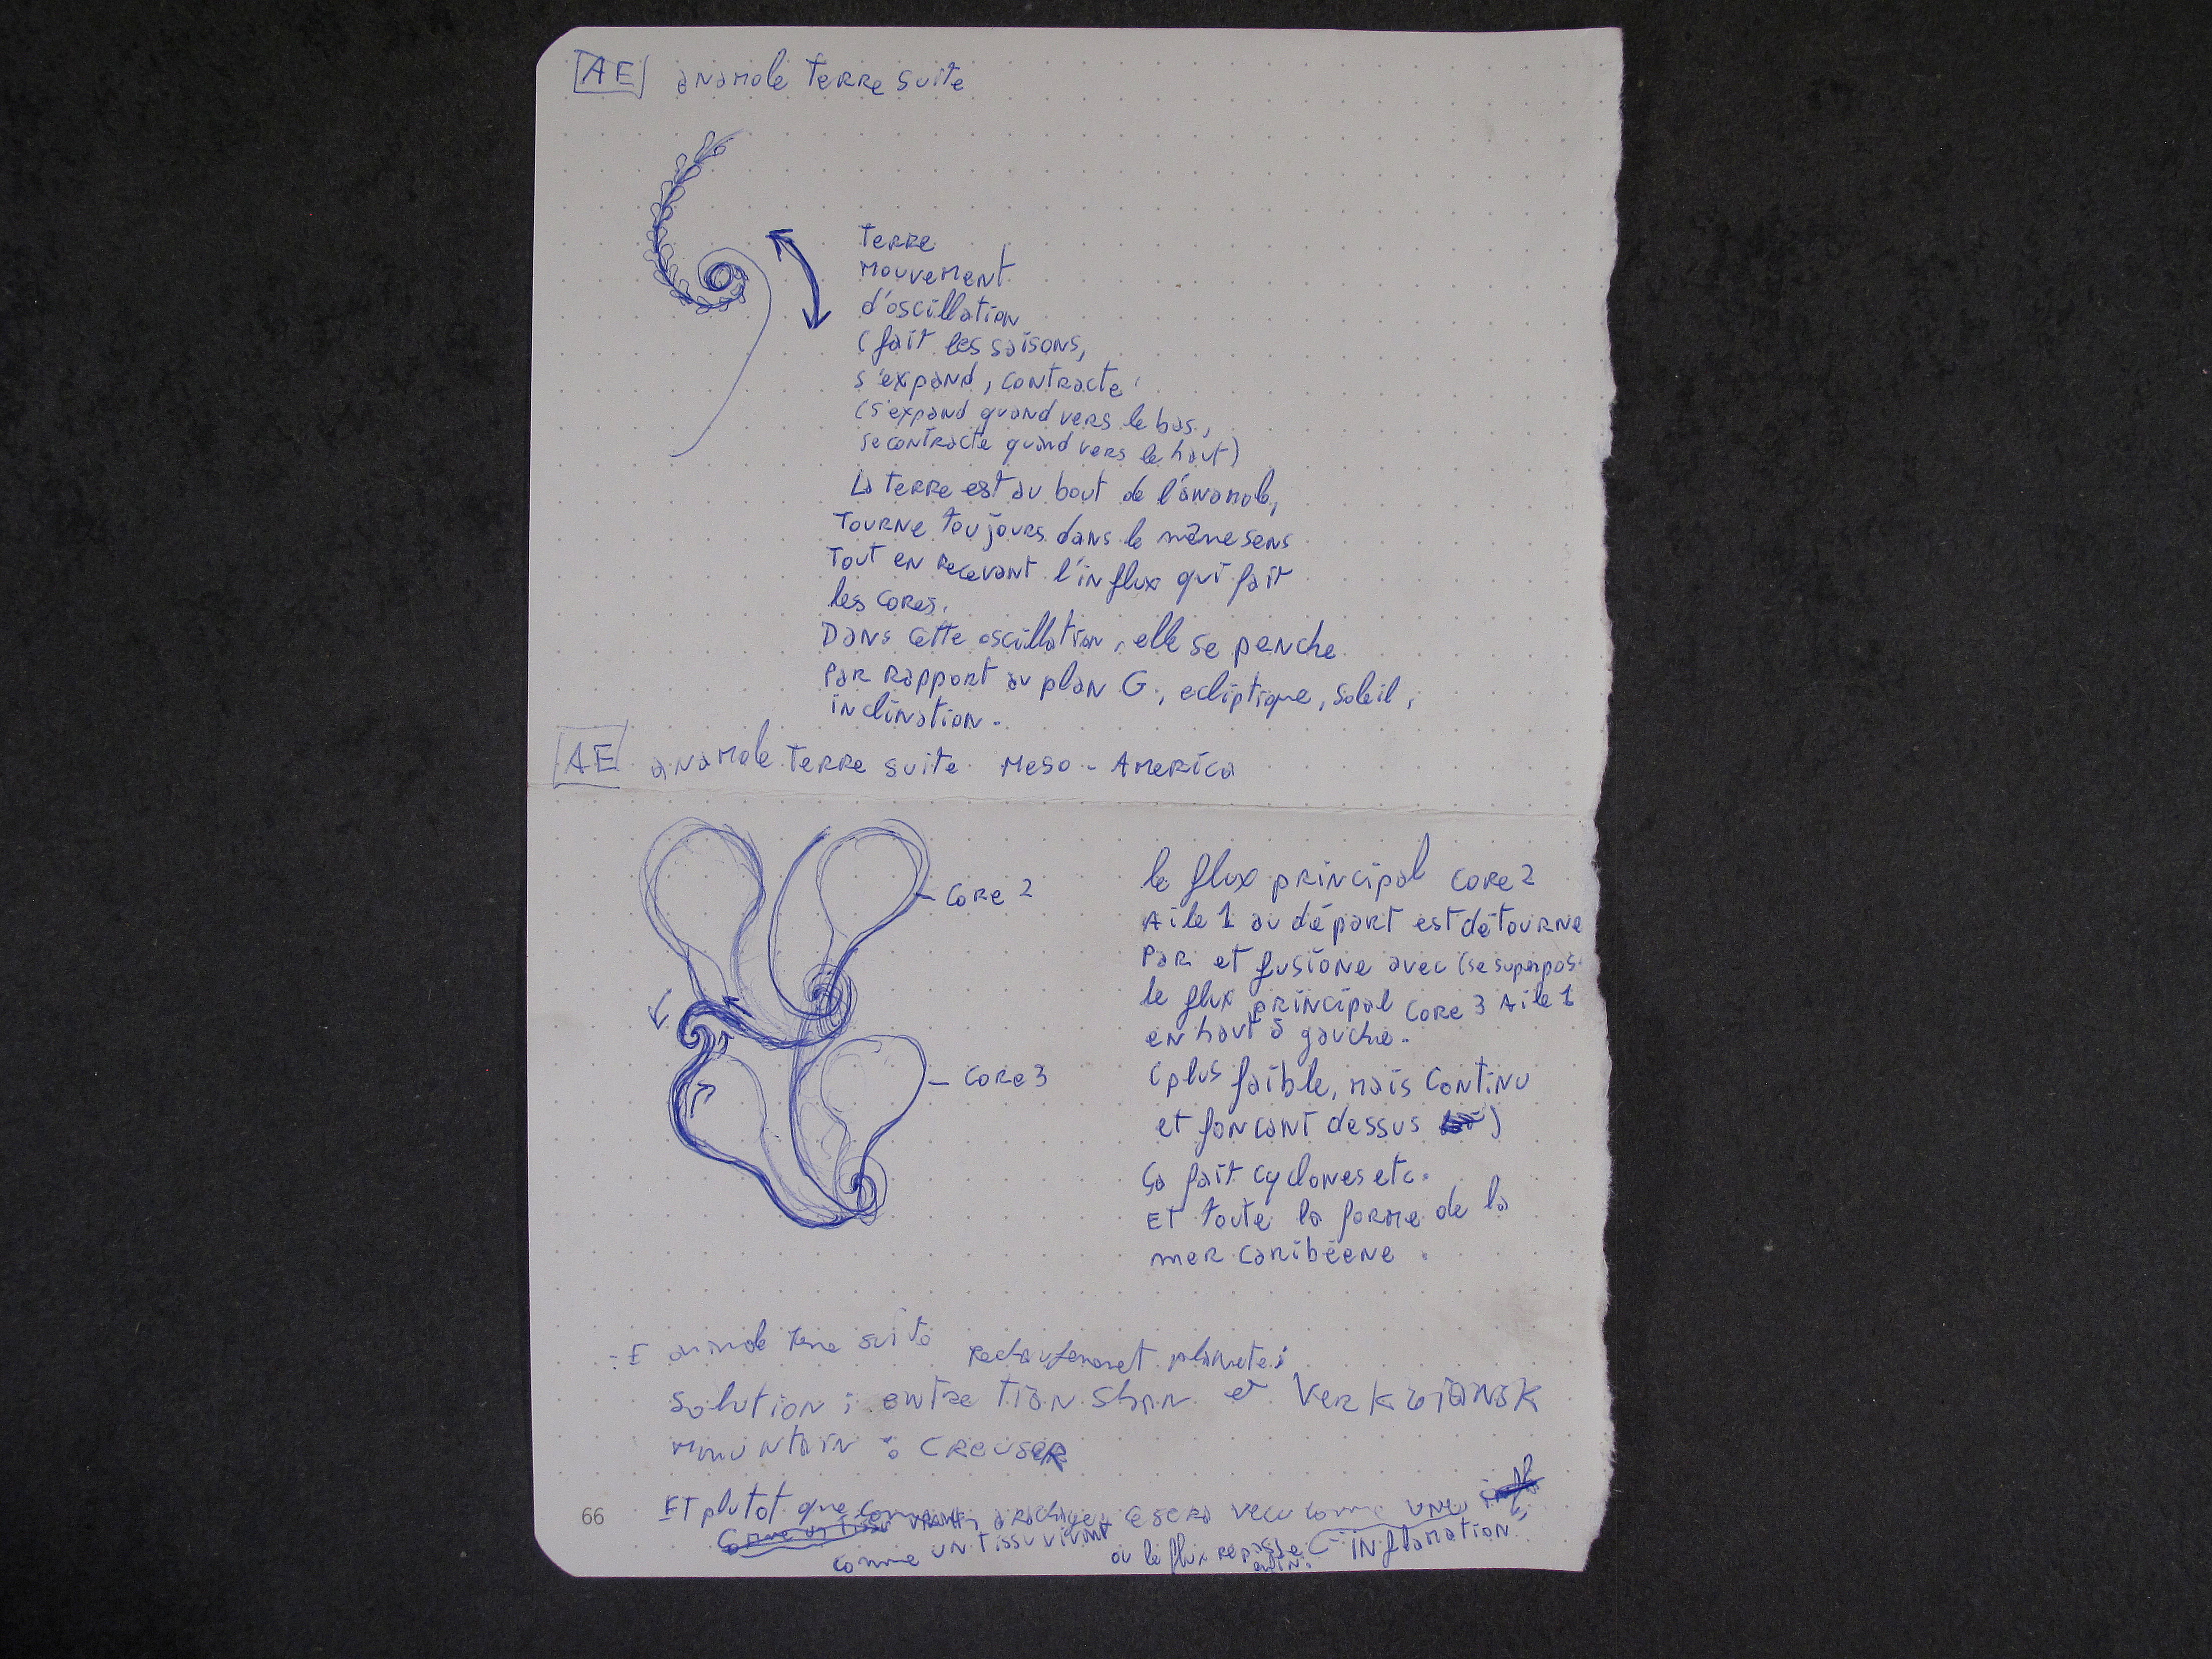 AE anamole terre suite
Terre
mouvement
d'oscillation
(fait les saisons,
s'expand, contracte
(s'expand quand vers le bas,
se contracte quand vers le haut)
La terre est au bout de l'anamole,
Tourne toujours dans le même sens
Tout en recevant l'influx qui fait
les cores.
Dans cette oscillation, elle se penche
par rapport au plan G., ecliptique, soleil,
inclination.
AE anamole terre suite Meso-America
Core 2
Core 3
le flux principal core 2
Aile 1 au départ est détourne
par et fusione avec (se superpos
le flux principal core 3 Aile 1
en haut à gauche.
(plus faible, mais continu
et foncant dessus )
ça fait cyclones etc.
Et toute la forme de la
mer caribéene.
terre suite rechaufement planete:
solution : entre Tian Shan et Verkoiansk
mountain : creuser
66
Et plutot que sera vecu comme une
comme un tissu vivant où le flux repasse inflamation.
enfin.